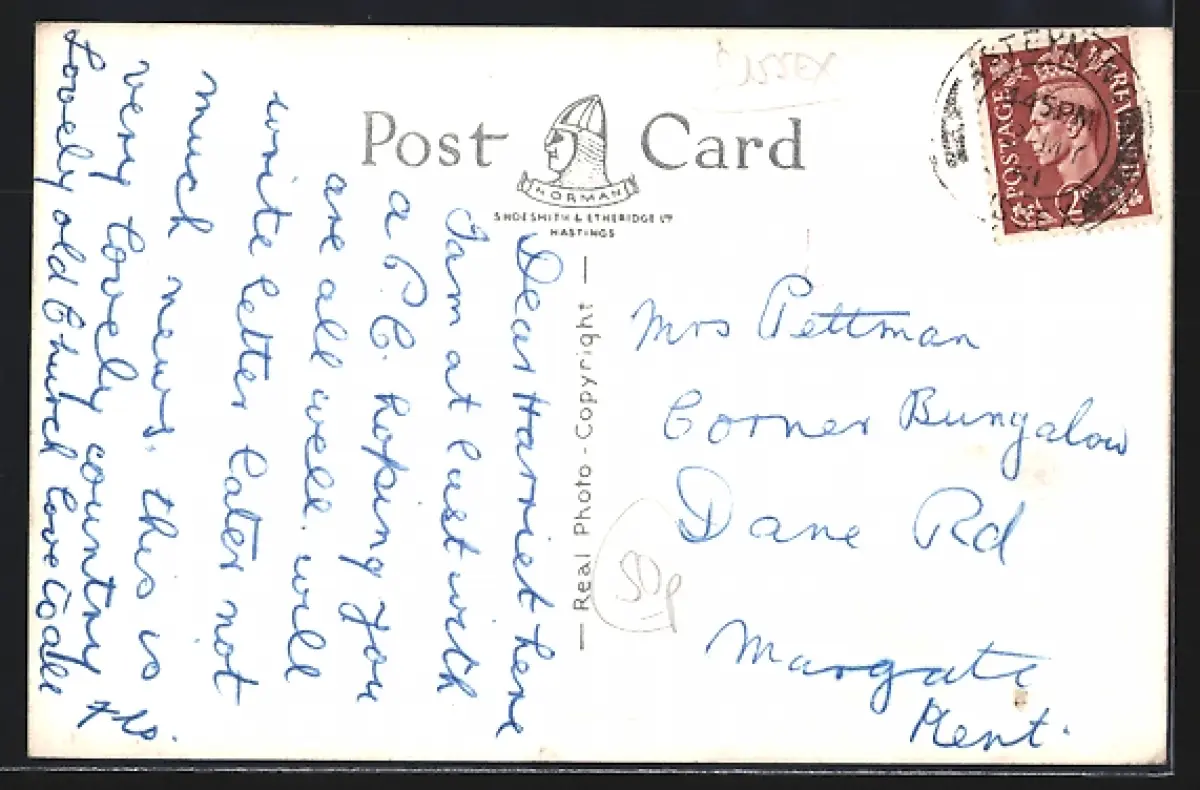 Post Card
NORMAN
SHOESMITH & ETHERIDGE LTD
HASTINGS
— Real Photo - Copyright —
Dear Harriet here
I am at last with
a P.C. hoping you
are all well. will
write letter later not
much news. this is
very lovely country
Lovely old Church love to all
Flo.
Mrs Pettman
Corner Bungalow
Dane Rd
Margate
Kent.
50p
POSTAGE
REVENUE
STEYN
145 PM
51
SEX
2D